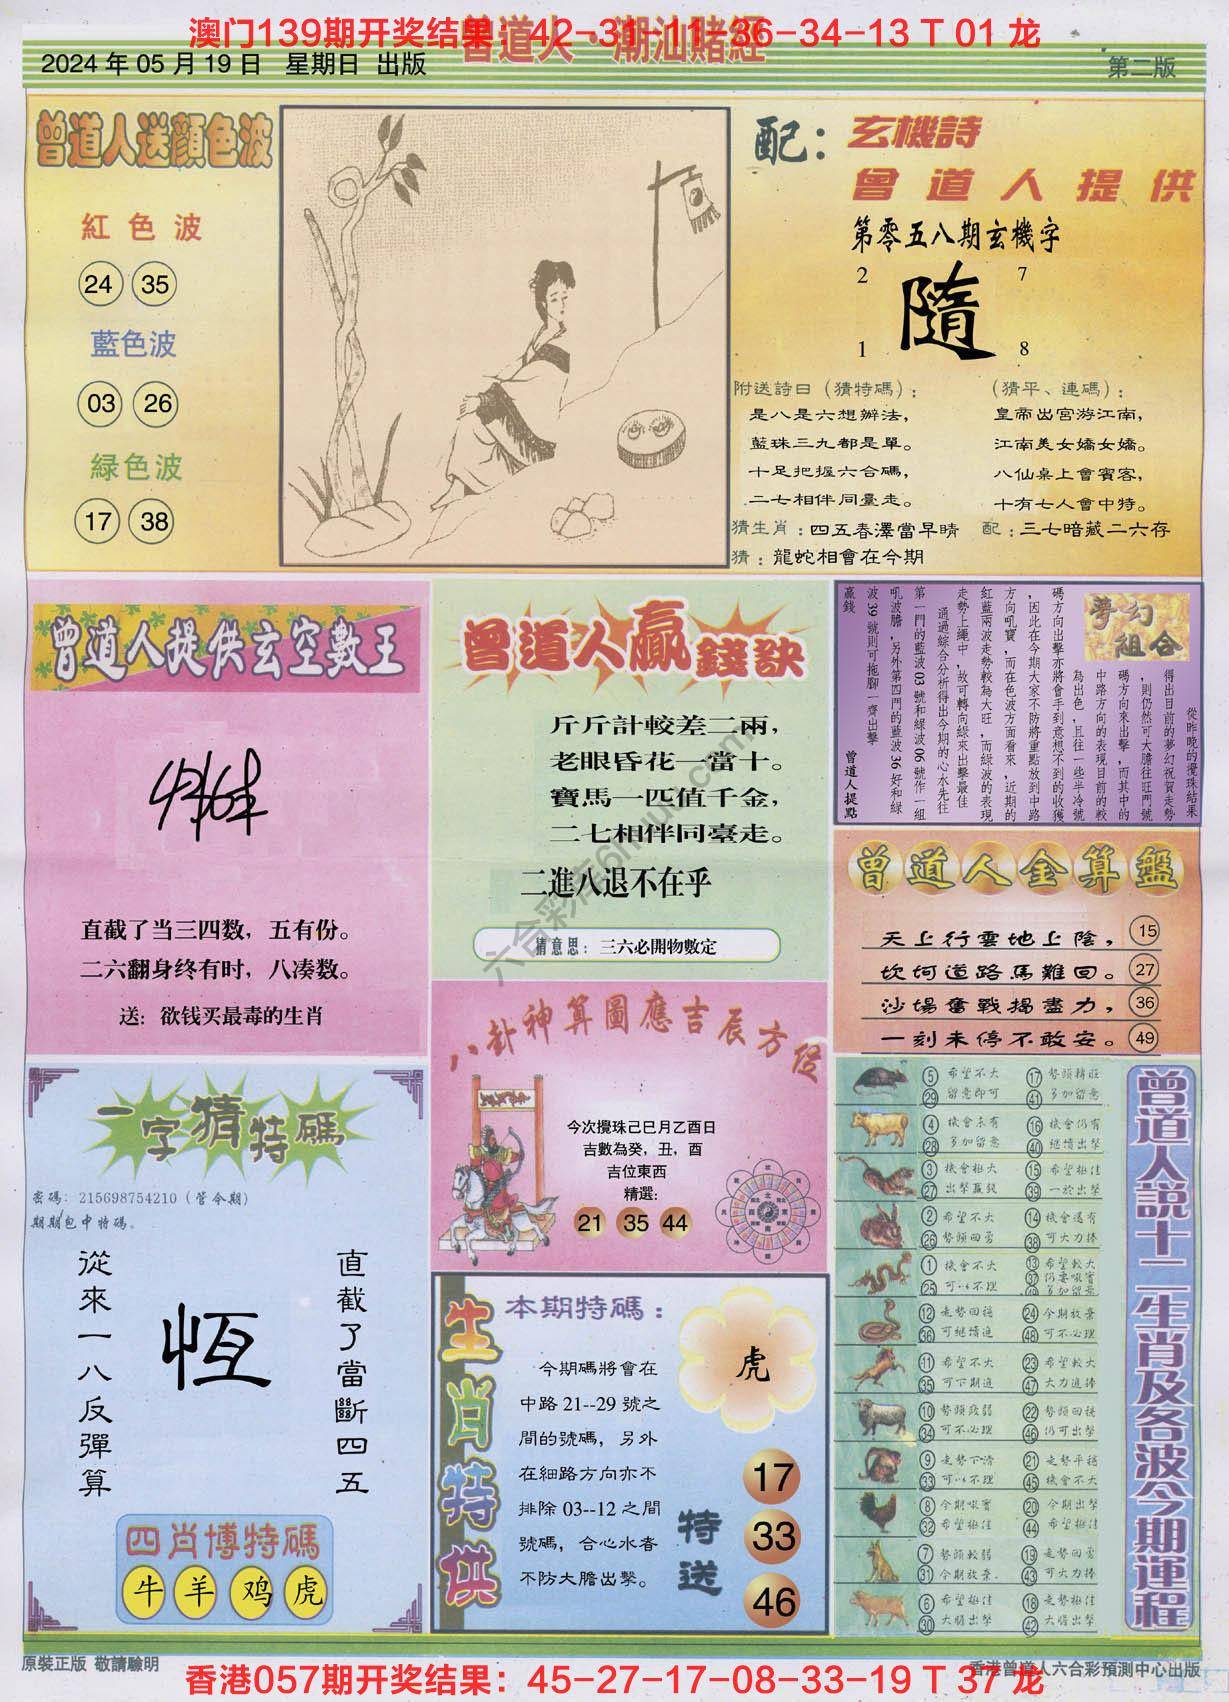 澳门139期开奖结果：42-31-11-36-34-13 T 01 龙
曾道人·潮汕賭經
2024 年 05 月 19 日 星期日 出版
第二版
曾道人送顏色波
紅色波
24 35
藍色波
03 26
緑色波
17 38
配：玄機詩
曾道人提供
第零五八期玄機字
2 7
隨
1 8
附送詩曰（猜特碼）：
是八是六想辦法，
藍珠三九都是單。
十足把握六合碼，
二七相伴同臺走。
（猜平、連碼）：
皇帝出宮游江南，
江南美女嬌女嬌。
八仙桌上會賓客，
十有七人會中特。
猜生肖：四五春澤當早晴 配：三七暗藏二六存
猜：龍蛇相會在今期
曾道人提供玄空數王
直截了当三四数，五有份。
二六翻身终有时，八凑数。
送：欲钱买最毒的生肖
曾道人贏錢訣
斤斤計較差二兩，
老眼昏花一當十。
寶馬一匹值千金，
二七相伴同臺走。
二進八退不在乎
猜意思：三六必開物數定
夢幻組合
從昨晚的攪珠結果
得出目前的夢幻祝賀走勢
，則仍然可大膽往旺門號
碼方向來出擊，而其中的
中路方向的表現目前的較
為出色，且往一些半冷號
碼方向出擊亦將會手到意想不到的收獲
，因此在今期大家不防將重點放到中路
方向吼寶，而在色波方面看來，近期的
紅藍兩波走勢較為大旺，而綠波的表現
走勢上繩中，故可轉向綠來出擊最佳
通過綜合分析得出今期的心水先往
第一門的藍波 03 號和綠波 06 號作一組
吼波膽，另外第四門的藍波 36 好和綠
波 39 號則可拖腳一齊出擊
贏錢
曾道人提點
曾道人金算盤
天上行雲地上陰， 15
坎坷道路馬難回。 27
沙場奮戰揚盡力， 36
一刻未停不敢安。 49
八卦神算圖應吉辰方位
今次攪珠己巳月乙酉日
吉數為癸，丑，酉
吉位東西
精選：
21 35 44
一字猜特碼
密碼：215698754210（管令期）
期期包中特碼。
從來一八反彈算
恆
直截了當斷四五
四肖博特碼
牛 羊 鸡 虎
生肖特供
本期特碼：
虎
今期碼將會在
中路 21--29 號之
間的號碼，另外
在細路方向亦不
排除 03--12 之間
號碼，合心水者
不防大膽出擊。
特送
17
33
46
曾道人説十二生肖及各波今期運程
5 希望不大 17 勢頭轉旺
29 留意即可 41 多加留意
4 機會未有 16 機會仍有
28 多加留意 40 繼續出擊
3 機會極大 15 希望極佳
27 出擊贏錢 39 一於出擊
2 希望不大 14 機會還有
26 勢頭回勇 38 可大力捧
1 機會不大 13 希望較大
25 可以不理 37 仍要吼實
多加留意
12 走勢回穩 24 今期放棄
36 可繼續追 48 可不必理
11 希望不大 23 希望較大
35 可下期追 47 大力追捧
10 勢頭致弱 22 勢頭回穩
34 可不必理 46 仍可出擊
9 走勢下滑 21 走勢平穩
33 可以不理 45 機會不大
8 今期吼實 20 今期出擊
32 希望極佳 44 希望極佳
7 勢頭較弱 19 走勢回勇
31 今期放棄. 43 可大力捧
6 希望極佳 18 走勢極佳
30 大膽出擊 42 大膽出擊
原裝正版 敬請驗明
香港曾道人六合彩預測中心出版
香港057期开奖结果：45-27-17-08-33-19 T 37 龙